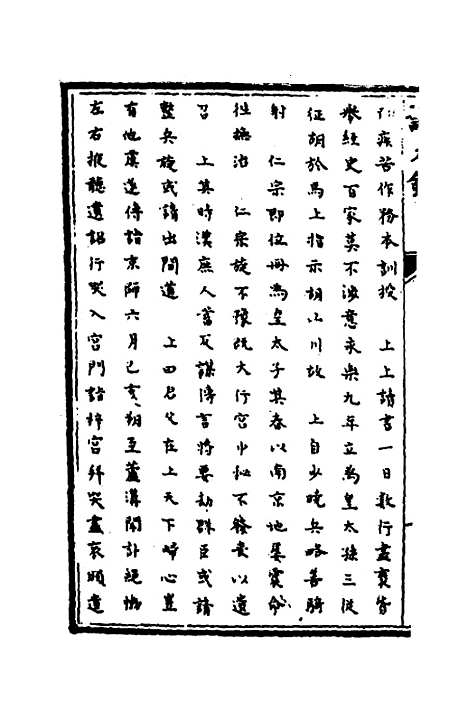 疾苦作務本訓授　上上讀書一日數行盡裏皆
眾經史百家莫不涉意永樂九年立為皇太孫三從
征胡於馬上指示胡山川故　上自少曉兵略善騎
射　仁宗即位冊為皇太子其春以南京地屢震命
往撫治　仁宗旋不豫既大行宮中祕不發喪以遺
召　上其時漢庶人蓄反謀傳言將要劫群臣或請
整兵旋或請出間道　上曰君父在上天下歸心豈
有他虞遂傳詣京師六月己亥朔至蘆溝聞訃絕慟
左右掖聽遺詔行哭入宮門詣梓宮拜哭盡哀頒遺